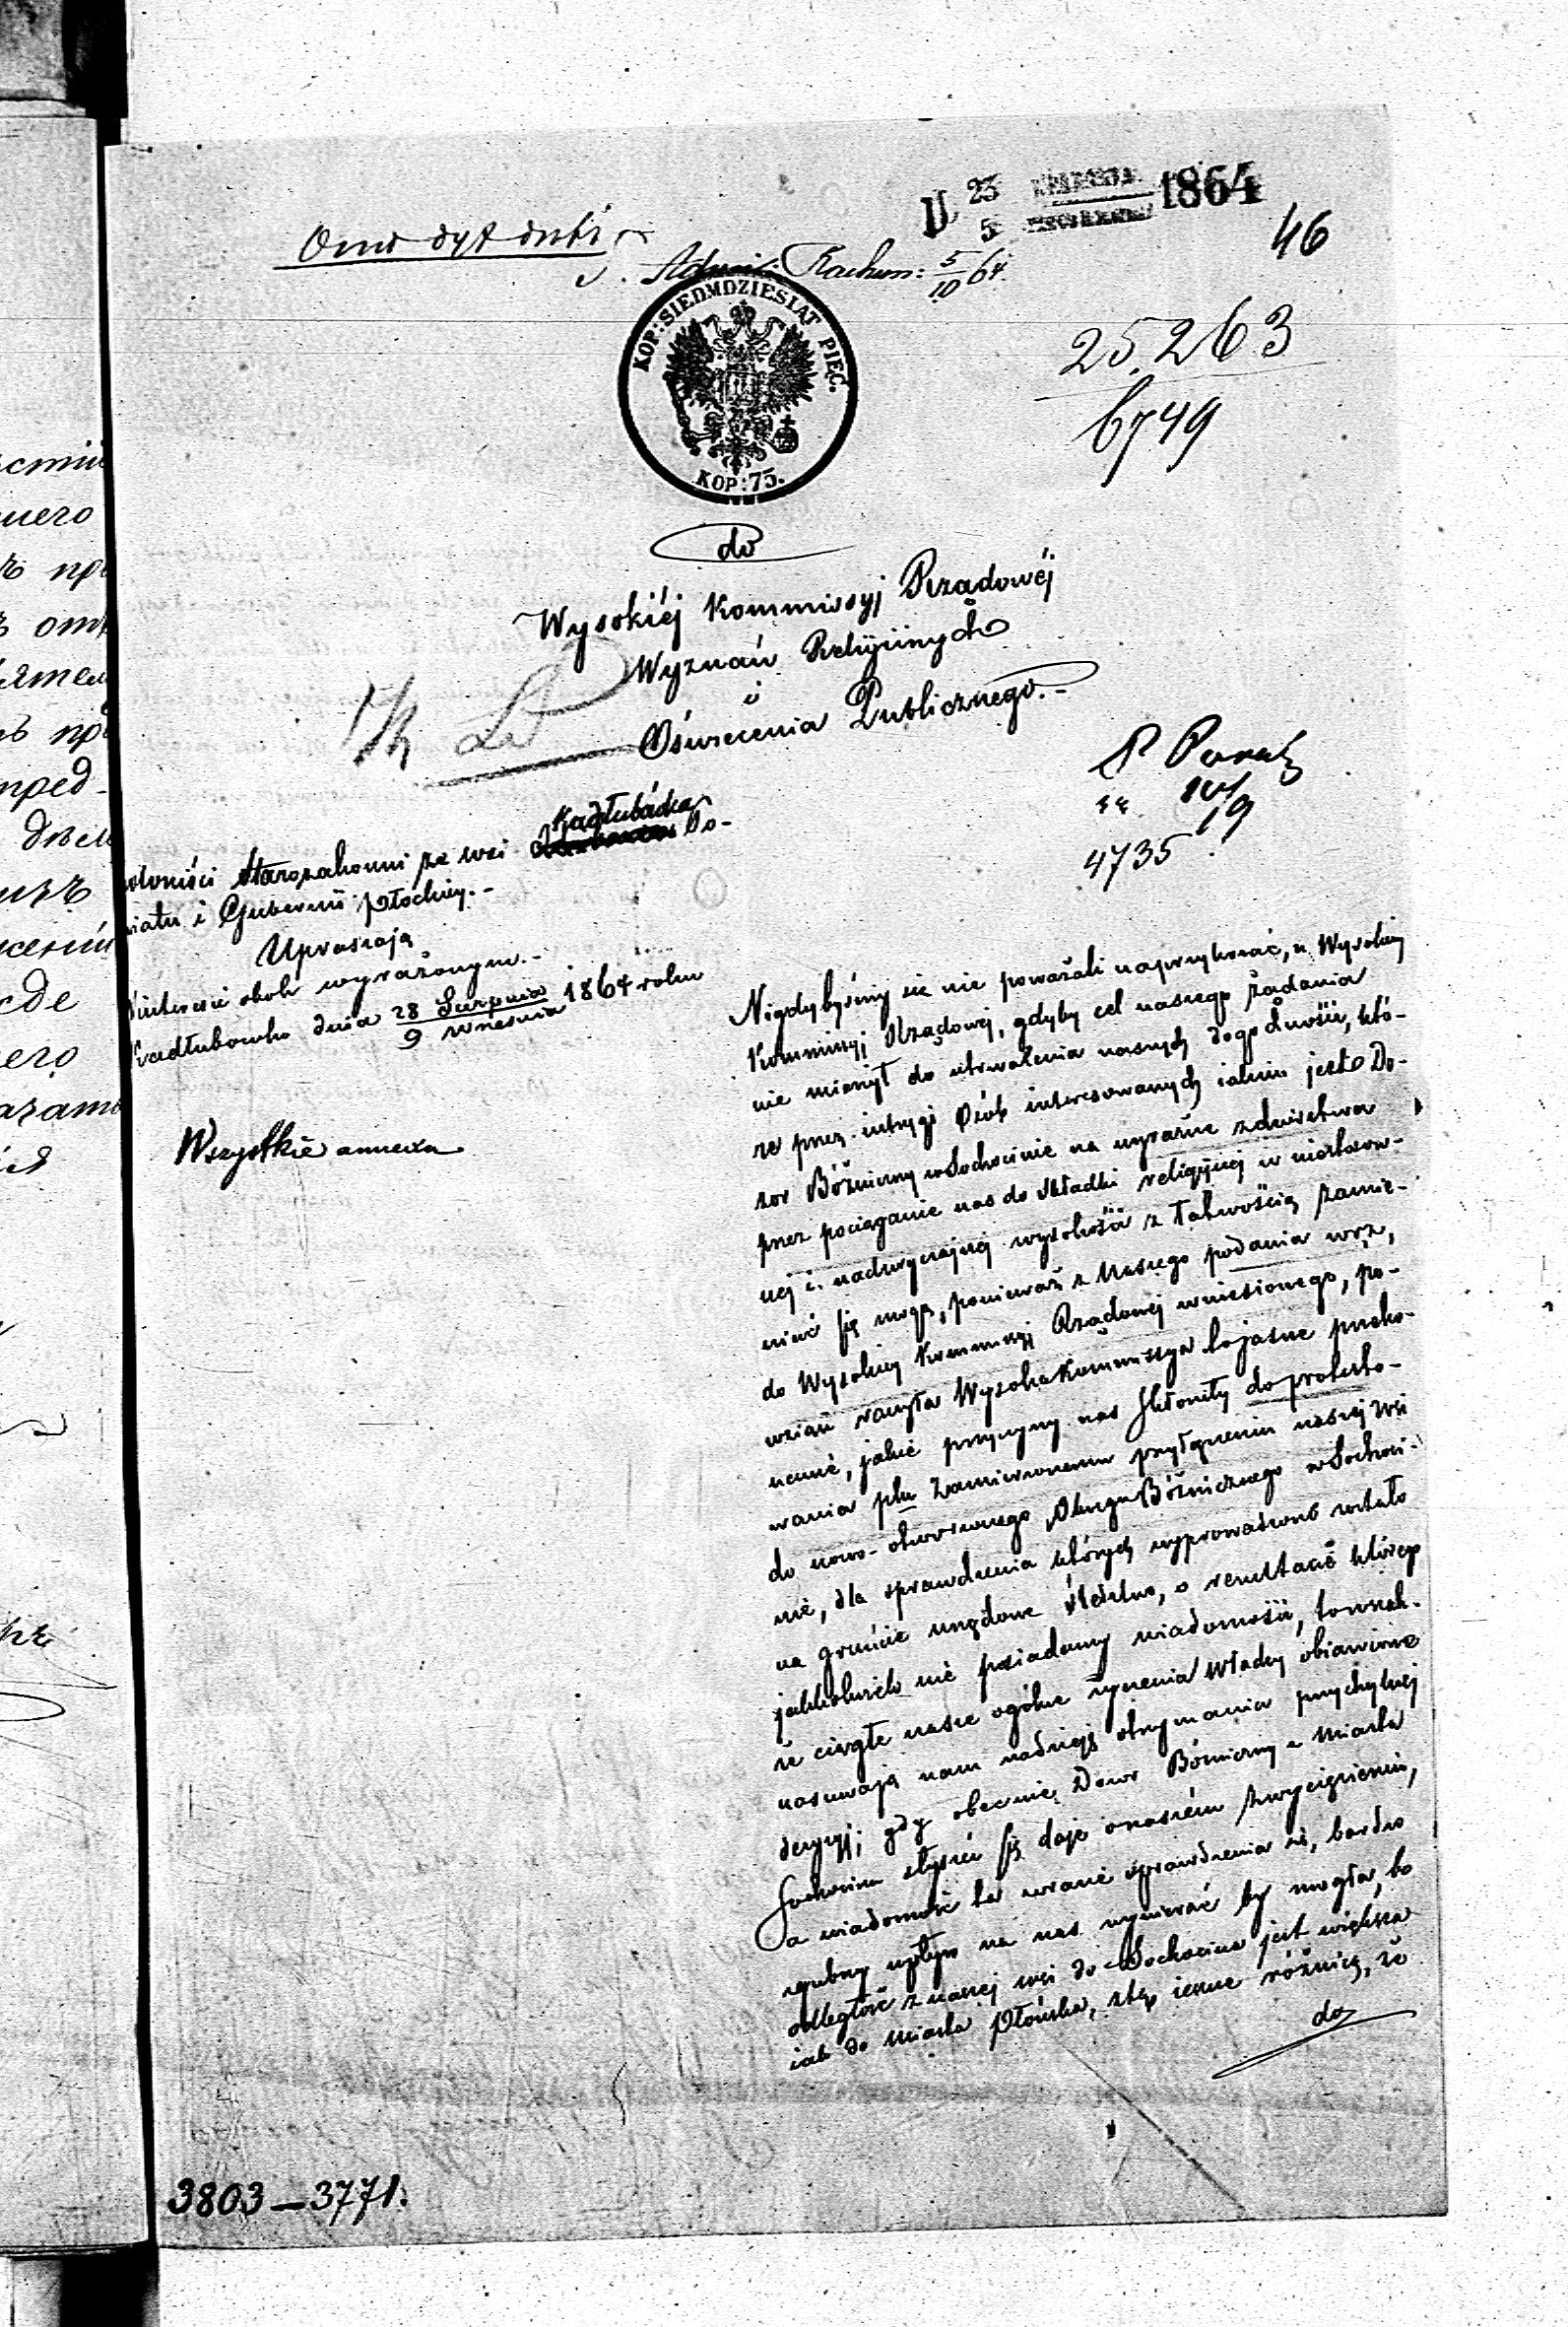 U. 23 5 1864
46
Rachun: 5/10 64.
KOP: SIEDMDZIESIĄT PIĘĆ.
KOP: 75.
25.263
6749
do
Wysokiéj Kommissyj Rządowéj
Wyznań Religijnych
i
Oświecenia Publicznego.-
14/9
4735
Kadłubówka
Starozakonni ze wsi Po-
wiatu i Gubernii Płockiej.-
Upraszają
interesie obok wyrażonym.-
Kadłubowka dnia 28 Sierpnia / 9 Września 1864 roku
Wszystkie annexa
Nigdybyśmy się nie poważali naprzykrzać, Wysokiej
Kommissyj Rządowej, gdyby cel naszego żądania
nie mierzył do utrwalenia naszych dogodności, któ-
re przez intrygi Osób interesowanych jakim jest Do-
zor Bóżniczny w Sochocinie na wyraźne zdzierstwa
przez pociąganie nas do składki religijnej w niestosow-
nej i nadzwyczajnej wysokości z łatwością zamie-
nić się mogą, ponieważ z Naszego podania
do Wysokiej Kommissyj Rządowej wniesionego, po-
wziąć raczyła Wysoka Kommissya to jasne przeko-
nanie, jakie przyczyny nas skłoniły do protesto-
wania zamierzonemu przyłączeniu naszej wsi
do nowo-otworzonego Okręgu Bóżnicznego w Sochoci-
nie, dla sprawdzenia których wyprowadzone zostało
na gruncie urzędowe śledztwo, o rezultacie którego
jakkolwiek nie posiadamy wiadomości, to wszak-
że ciągłe nasze ogólne życzenia Władzy objawione
nasuwają nam nadzieję otrzymania przychylnej
decyzyj; gdy obecnie Dozor Bóżniczny z Miasta
Sochocina słyszeć się daje o naszém zwyciężeniu,
a wiadomość ta w razie sprawdzenia się, bardzo
zgubny wpływ na nas wywierać by mogła, bo
odległość z naszej wsi do Sochocina jest większa
jak do Miasta Płońska, z tą jeszcze różnicą, że
do
3803-3771.